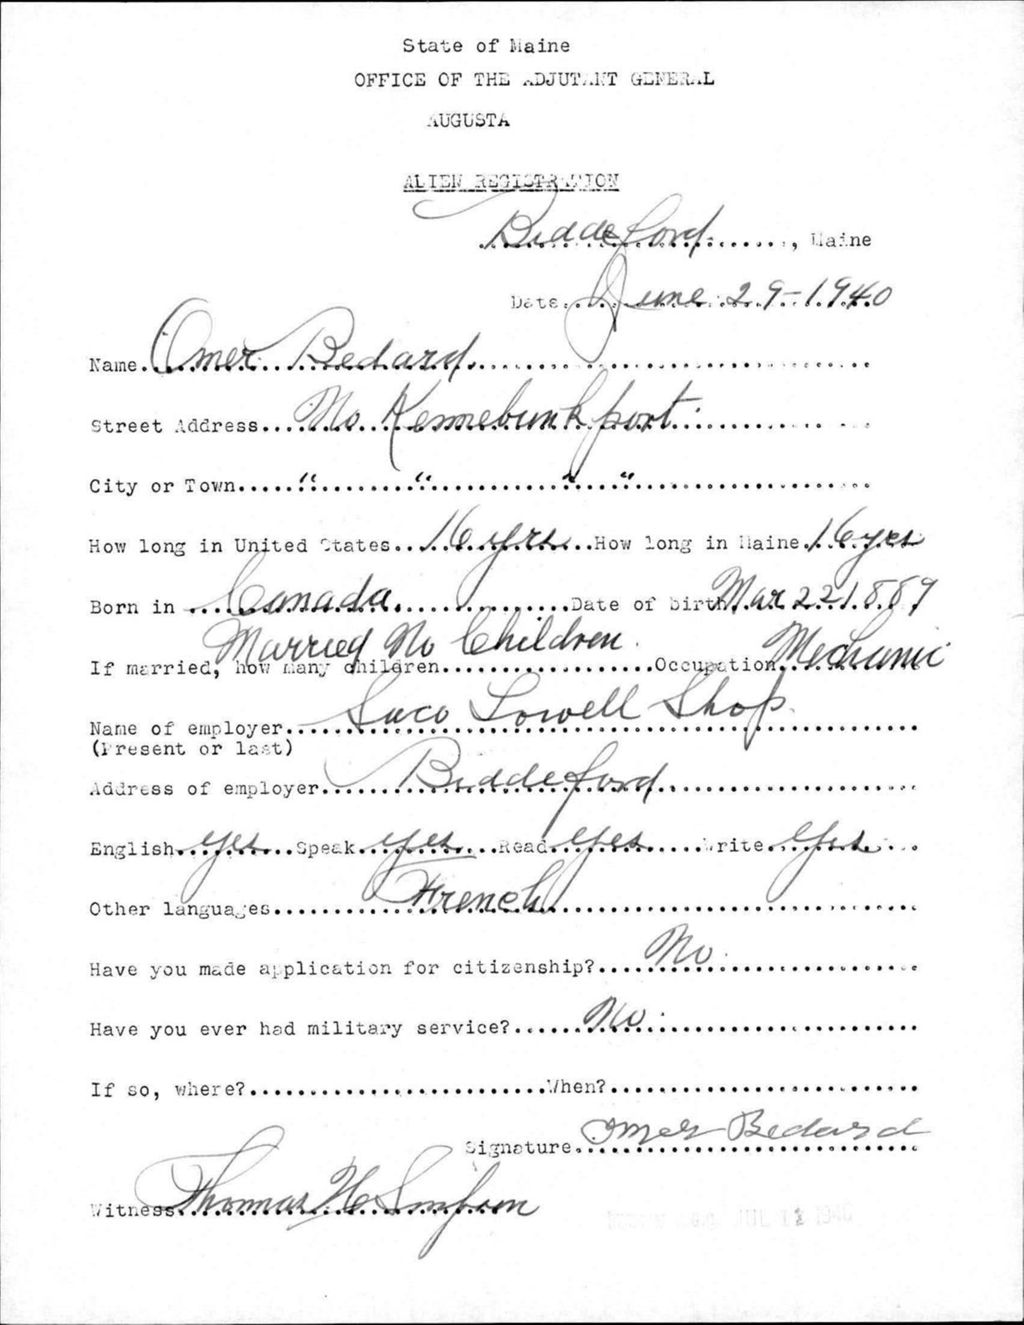 State of Maine
OFFICE OF THE ADJUTANT GENERAL
AUGUSTA
ALIEN REGISTRATION
Biddeford, Maine
Date June 29-1940
Name Omer Bedard
Street Address No Kennebunkport
City or Town " " " "
How long in United States 16 yrs How long in Maine 16 yrs
Born in Canada Date of birth Mar 22 1889
Married No Children
If married, how many children Occupation Mechanic
Name of employer Saco Lowell Shop
(Present or last)
Address of employer Biddeford
English yes Speak yes Read yes Write yes
Other languages French
Have you made application for citizenship? No
Have you ever had military service? No
If so, where? When?
Signature Omer Bedard
Witness Thomas H Simpson
JUL 12 1940